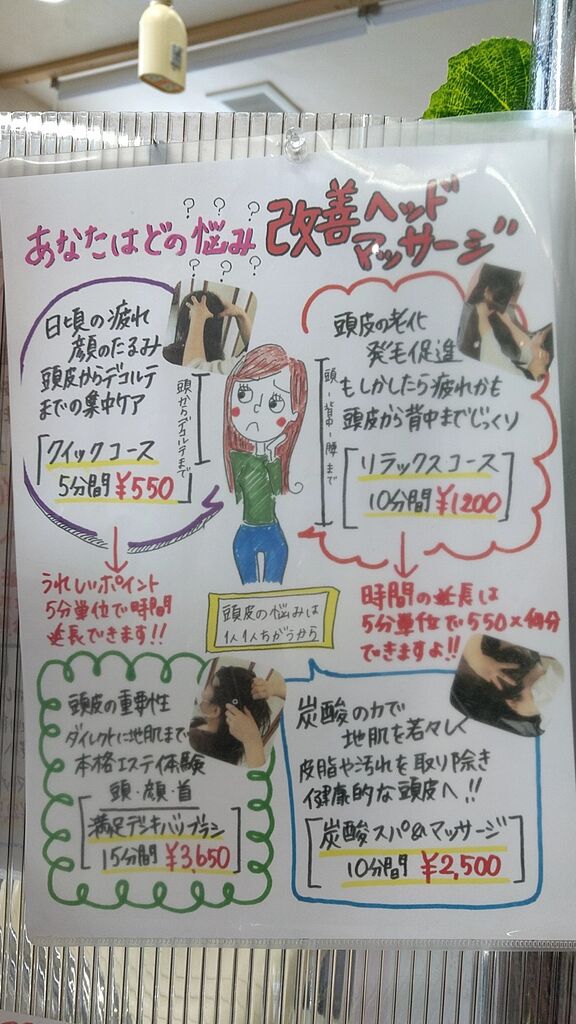 ? ? ?
あなたはどの悩み
? ? ?
改善ヘッド
マッサージ
日頃の疲れ
顔のたるみ
頭皮からデコルテ
までの集中ケア
クイックコース
5分間 ¥550
頭からデコルテまで
頭皮の老化
発毛促進
もしかしたら疲れかも
頭皮から背中までじっくり
リラックスコース
10分間 ¥1200
頭-背中-腰まで
うれしいポイント
5分単位で時間
延長できます!!
頭皮の悩みは
1人1人ちがうから
時間の延長は
5分単位で550×何分
できますよ!!
頭皮の重要性
ダイレクトに地肌まで
本格エステ体験
頭・顔・首
満足デンキバリプラン
15分間 ¥3,650
炭酸の力で
地肌を若々しく
皮脂や汚れを取り除き
健康的な頭皮へ!!
炭酸スパ&マッサージ
10分間 ¥2,500